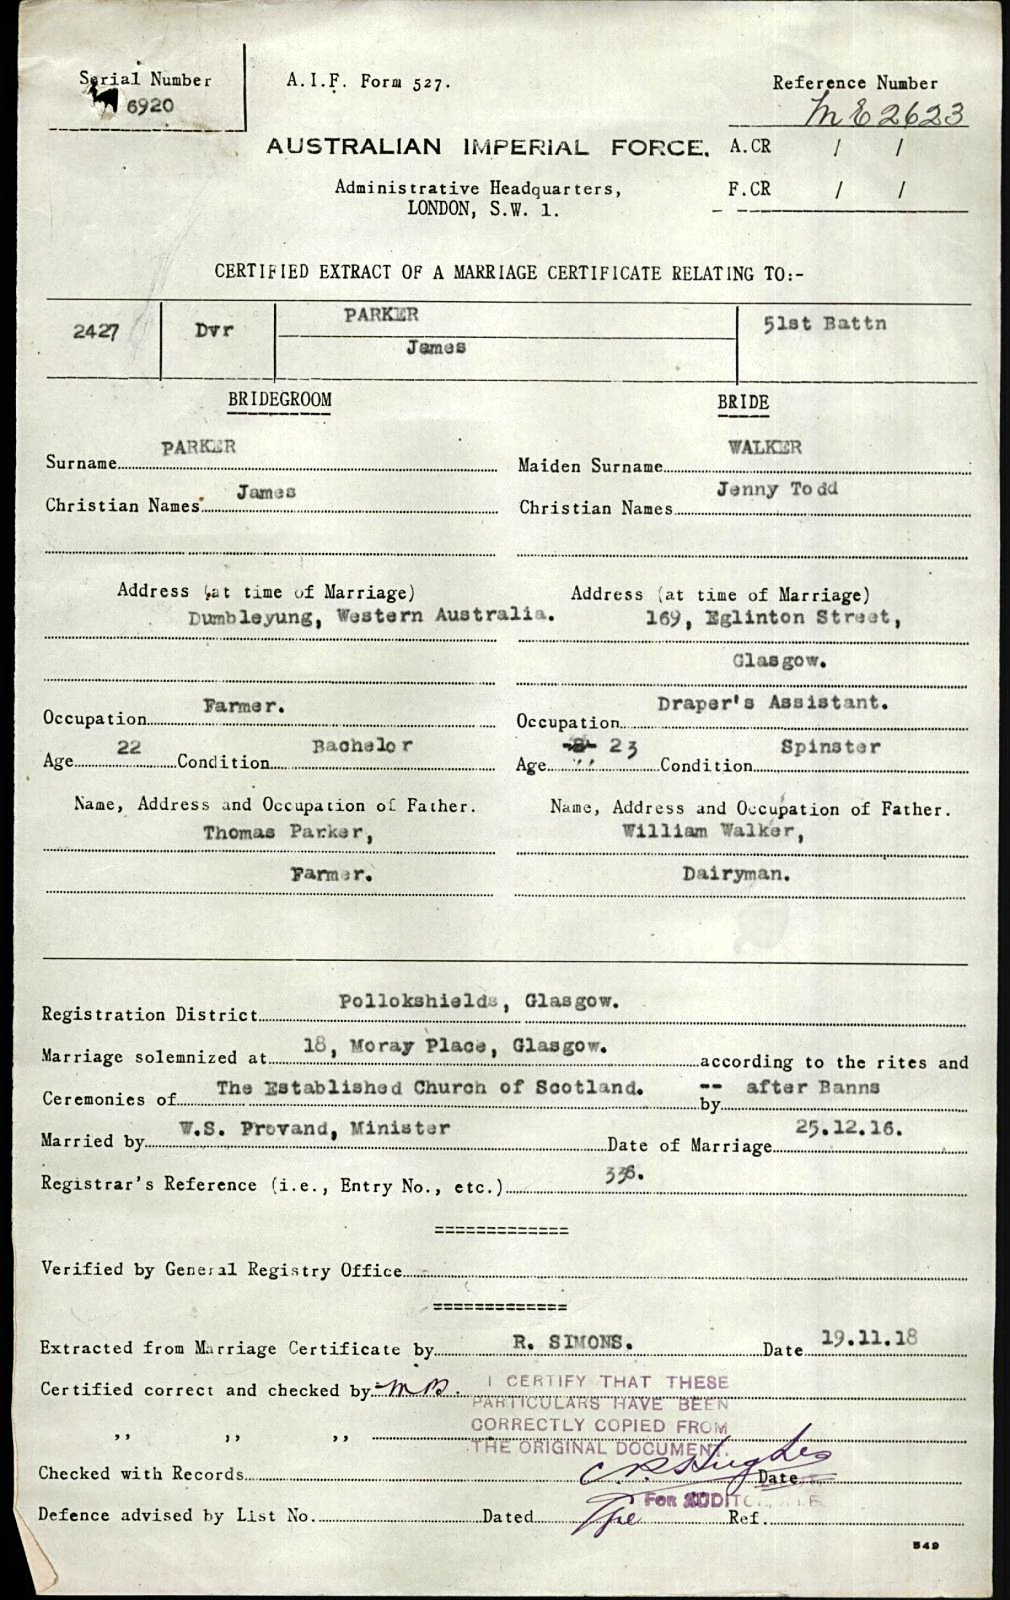 Serial Number
6920
A.I.F. Form 527.
Reference Number
ME2623
AUSTRALIAN IMPERIAL FORCE.
A.CR / /
Administrative Headquarters,
LONDON, S.W. 1.
F.CR / /
CERTIFIED EXTRACT OF A MARRIAGE CERTIFICATE RELATING TO:-
2427 Dvr PARKER 51st Battn
James
BRIDEGROOM BRIDE
Surname PARKER Maiden Surname WALKER
Christian Names James Christian Names Jenny Todd
Address (at time of Marriage) Address (at time of Marriage)
Dumbleyung, Western Australia. 169, Eglinton Street,
Glasgow.
Occupation Farmer. Occupation Draper's Assistant.
Age 22 Condition Bachelor Age 23 Condition Spinster
Name, Address and Occupation of Father. Name, Address and Occupation of Father.
Thomas Parker, William Walker,
Farmer. Dairyman.
Registration District Pollokshields, Glasgow.
Marriage solemnized at 18, Moray Place, Glasgow. according to the rites and
Ceremonies of The Established Church of Scotland. -- by after Banns
Married by W.S. Provand, Minister Date of Marriage 25.12.16.
Registrar's Reference (i.e., Entry No., etc.) 336.
=============
Verified by General Registry Office
=============
Extracted from Marriage Certificate by R. SIMONS. Date 19.11.18
Certified correct and checked by MB.
,, ,, ,,
I CERTIFY THAT THESE
PARTICULARS HAVE BEEN
CORRECTLY COPIED FROM
THE ORIGINAL DOCUMENT.
Checked with Records Date
FOR AUDITOR, A.I.F.
Defence advised by List No. Dated Ref.
549